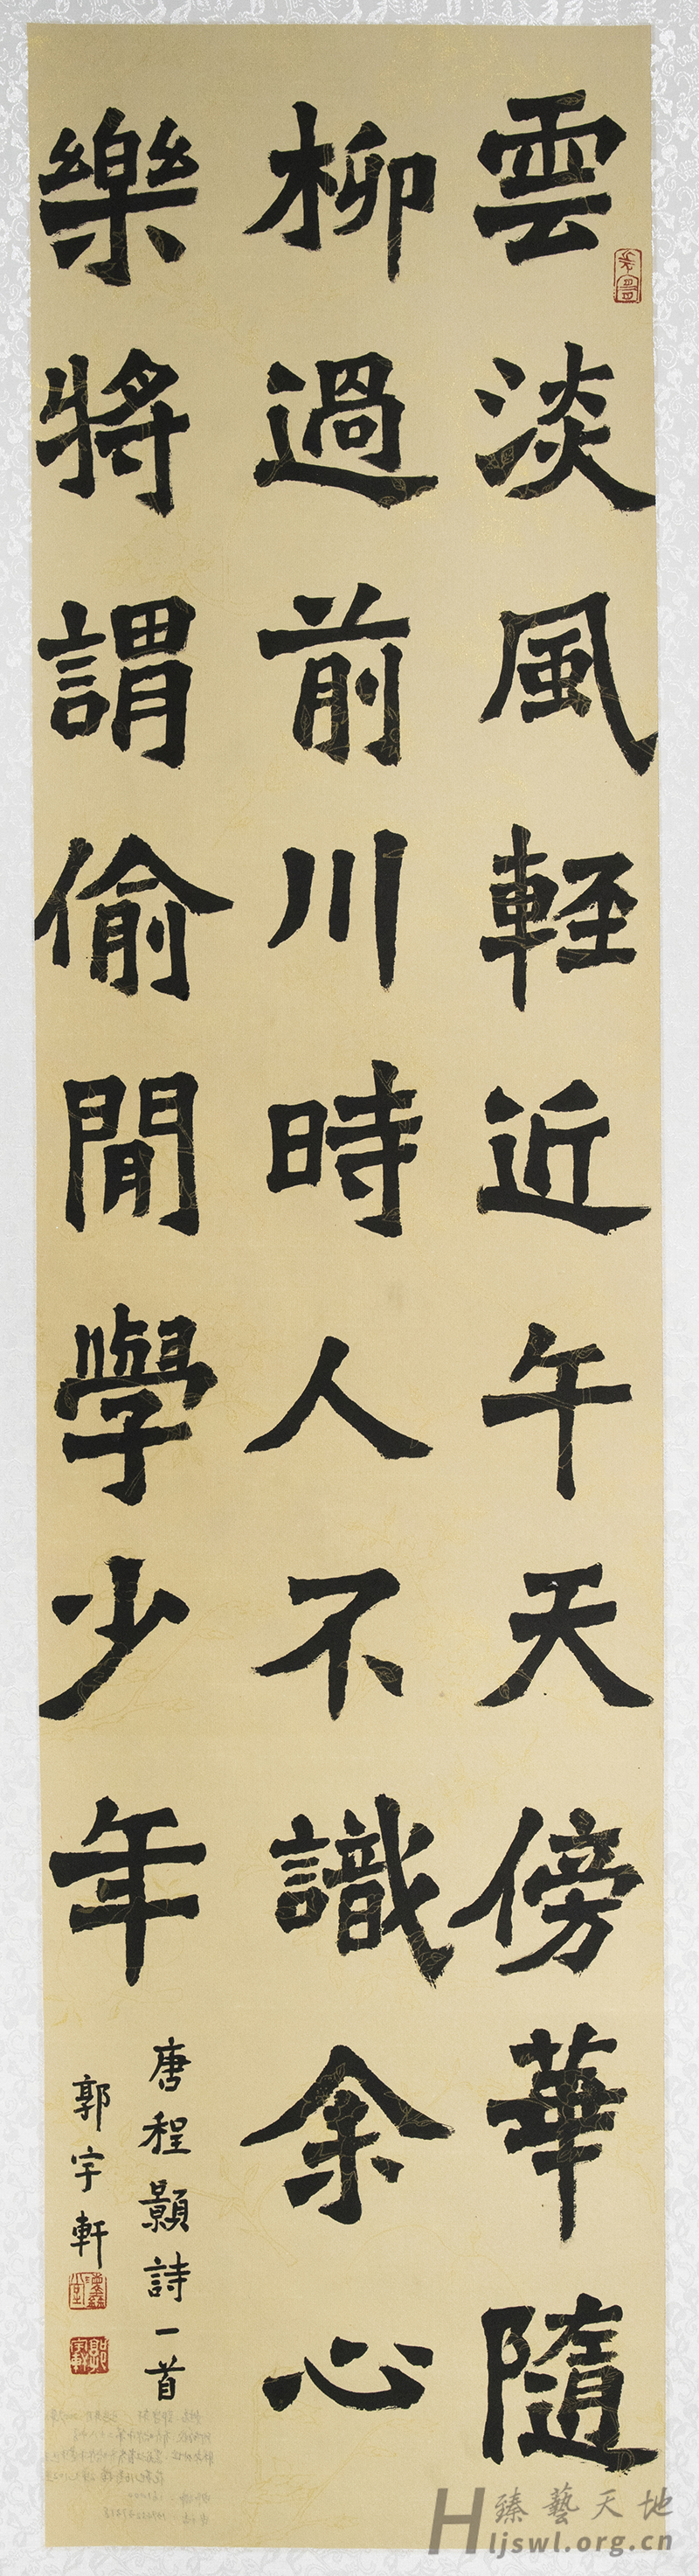 雲淡風輕近午天傍華隨
柳過前川時人不識余心
樂將謂偷閒學少年
唐程顥詩一首
郭宇軒
臻藝天地
Hljswl.org.cn